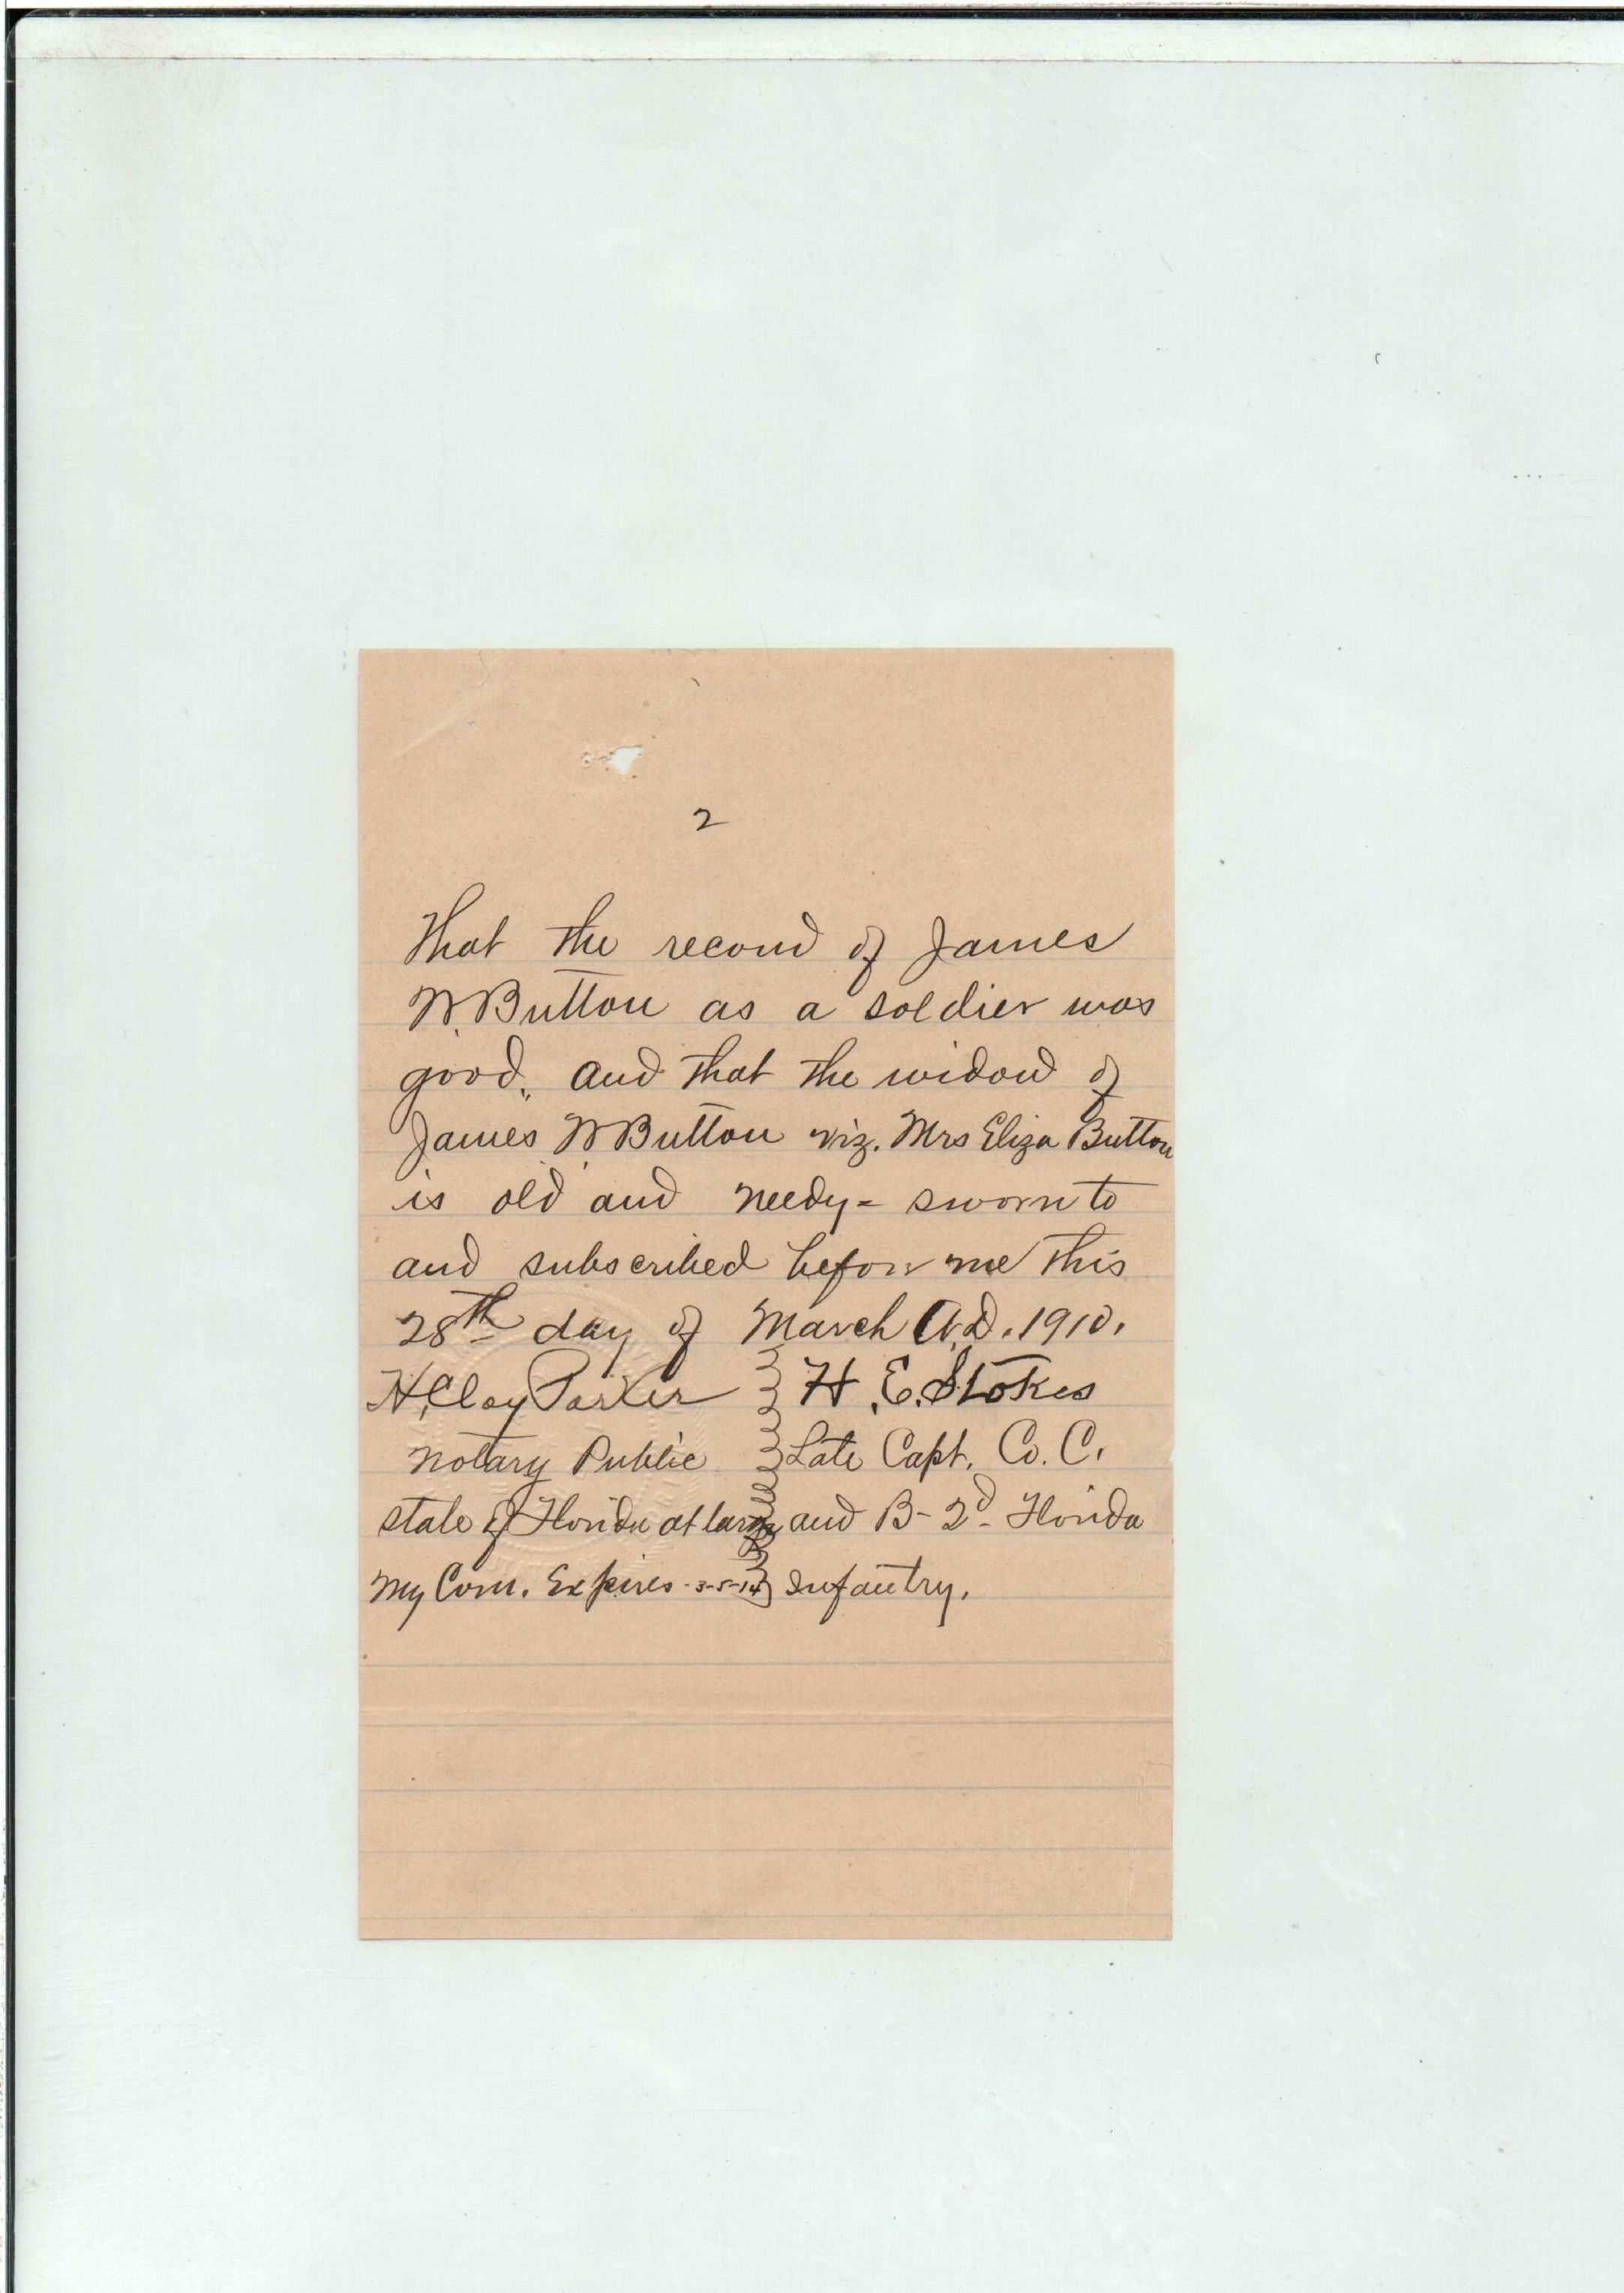 2
That the record of James
W. Button as a soldier was
good, and that the widow of
James W Button viz. Mrs Eliza Button
is old and needy = sworn to
and subscribed before me this
28th day of March A.D. 1910.
H. Clay Parker
H. E. Stokes
Notary Public
Late Capt. Co. C.
State of Florida at large
and B - 2d - Florida
My Com. Expires - 3-5-14
Infantry.